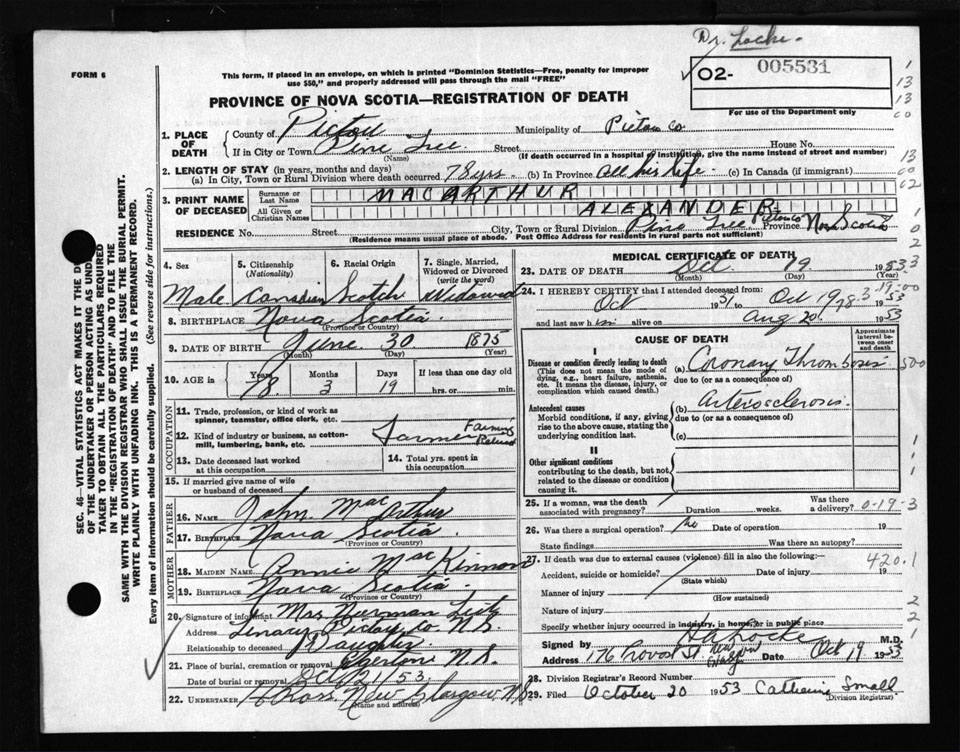 Dr. Locke.
FORM 6
This form, if placed in an envelope, on which is printed "Dominion Statistics—Free, penalty for improper
use $50," and properly addressed will pass through the mail "FREE"
O2- 005531
For use of the Department only
PROVINCE OF NOVA SCOTIA—REGISTRATION OF DEATH
1. PLACE OF DEATH { County of Pictou Municipality of Pictou Co
If in City or Town Pine Tree Street House No.
(Name) (If death occurred in a hospital or institution, give the name instead of street and number)
2. LENGTH OF STAY (in years, months and days)
(a) In City, Town or Rural Division where death occurred 78 yrs. (b) In Province All his life. (c) In Canada (if immigrant)
3. PRINT NAME OF DECEASED { Surname or Last Name MACARTHUR
All Given or Christian Names ALEXANDER
RESIDENCE No. Street City, Town or Rural Division Pine Tree Pictou Co Province Nova Scotia
(Residence means usual place of abode. Post Office Address for residents in rural parts not sufficient)
4. Sex Male
5. Citizenship (Nationality) Canadian
6. Racial Origin Scotch
7. Single, Married, Widowed or Divorced (write the word) Widowed
8. BIRTHPLACE Nova Scotia.
(Province or Country)
9. DATE OF BIRTH June 30 1875
(Month) (Day) (Year)
10. AGE in { Years 78 Months 3 Days 19 If less than one day old
hrs. or min.
OCCUPATION
11. Trade, profession, or kind of work as spinner, teamster, office clerk, etc.
12. Kind of industry or business, as cotton-mill, lumbering, bank, etc. Farmer Farming Retired
13. Date deceased last worked at this occupation
14. Total yrs. spent in this occupation
15. If married give name of wife or husband of deceased
FATHER
16. Name John MacArthur
17. Birthplace Nova Scotia
(Province or Country)
MOTHER
18. MAIDEN NAME Annie MacKinnon
19. BIRTHPLACE Nova Scotia.
(Province or Country)
20. Signature of informant Mrs Norman
Address Pictou Co. N.S.
Relationship to deceased Daughter
21. Place of burial, cremation or removal N.S.
Date of burial or removal Oct 21/53
22. UNDERTAKER Ross New Glasgow N.S
(Name and address)
MEDICAL CERTIFICATE OF DEATH
23. DATE OF DEATH Oct 19 1953
(Month) (Day)
24. I HEREBY CERTIFY that I attended deceased from:
Oct 1951 to Oct 19 1953
and last saw him alive on Aug 20 1953
CAUSE OF DEATH
Approximate interval between onset and death
I
Disease or condition directly leading to death
(This does not mean the mode of dying, e.g., heart failure, asthenia, etc. It means the disease, injury, or complication which caused death.)
(a) Coronary Thrombosis
due to (or as a consequence of)
Antecedent causes
Morbid conditions, if any, giving rise to the above cause, stating the underlying condition last.
(b) Arteriosclerosis.
due to (or as a consequence of)
(c)
II
Other significant conditions
contributing to the death, but not related to the disease or condition causing it.
25. If a woman, was the death associated with pregnancy? Duration weeks. Was there a delivery?
26. Was there a surgical operation? No Date of operation 19
State findings Was there an autopsy?
27. If death was due to external causes (violence) fill in also the following:—
Accident, suicide or homicide? Date of injury 19
(State which)
Manner of injury
(How sustained)
Nature of injury
Specify whether injury occurred in industry, in home, or in public place
Signed by H A Locke M.D.
Address 176 Provost St New Glasgow Date Oct 19 1953
28. Division Registrar's Record Number
29. Filed October 20 1953 Catherine Small.
(Division Registrar)
SEC. 46—VITAL STATISTICS ACT MAKES IT THE
OF THE UNDERTAKER OR PERSON ACTING AS
TAKER TO OBTAIN ALL THE PARTICULARS REQUIRED
IN THE "REGISTRATION OF DEATH" AND TO FILE THE
SAME WITH THE DIVISION REGISTRAR WHO SHALL ISSUE THE BURIAL PERMIT.
WRITE PLAINLY WITH UNFADING INK. THIS IS A PERMANENT RECORD.
Every item of information should be carefully supplied. (See reverse side for instructions.)
1
13
13
13
02
1
0
2
33
19-00
500
1
1
1
0-19-3
420.1
2
2
1